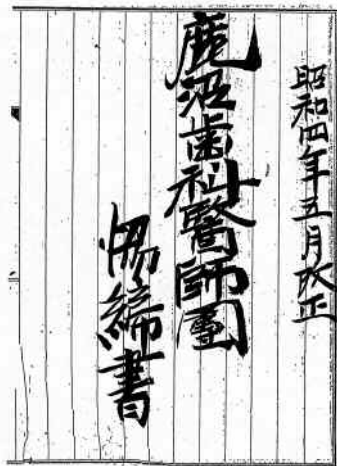 昭和四年五月改正
鹿沼歯科醫師團
協締書